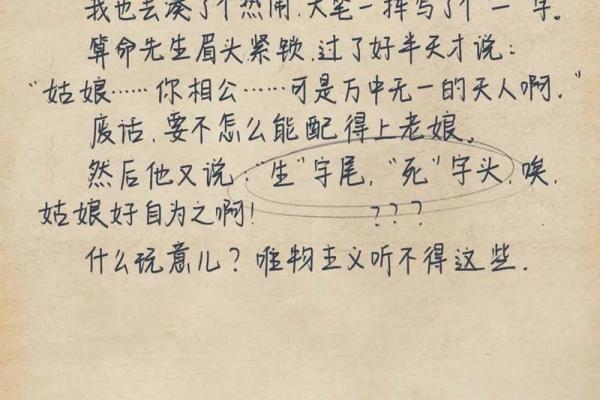 我也去凑了个热闹,大笔一挥写了个“一”字。
算命先生眉头紧锁,过了好半天才说:
“姑娘……你相公……可是万中无一的天人啊。”
废话,要不怎么能配得上老娘。
然后他又说:“生”字尾,“死”字头,唉,
姑娘好自为之啊!
???
什么玩意儿?唯物主义听不得这些.